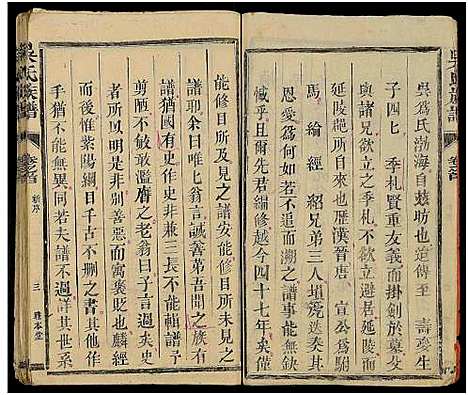 吳氏族譜
卷之首
吳為氏渤海自蓺昉也遠傳至 壽夢生
子四 季札賢重友義而掛劍於墓父
與諸兄欲立之季札不就封於延陵而
延陵郡所自來也歷漢晉唐 宣公為駙
馬 綸 經 紹兄弟三人塤箎迭奏俱
恩愛為何如而不追而溯之譜事能無
憾乎且爾先君繼修越今四十七年矣僅
能修目所及見之譜安能修目所未見之
譜耶余曰唯七翁言誠善弟吾聞之族有
譜猶國有史作史非兼三長不能其譜予
剪陋不敢濫膺之老翁曰子言過矣史
以明是非別善惡而寓褒貶也即麟經
其後惟紫陽綱目千古不刪之書其他
手猶不能無異同若夫譜不過詳其世系
吳氏族譜
卷之首
新序
三
雍本堂